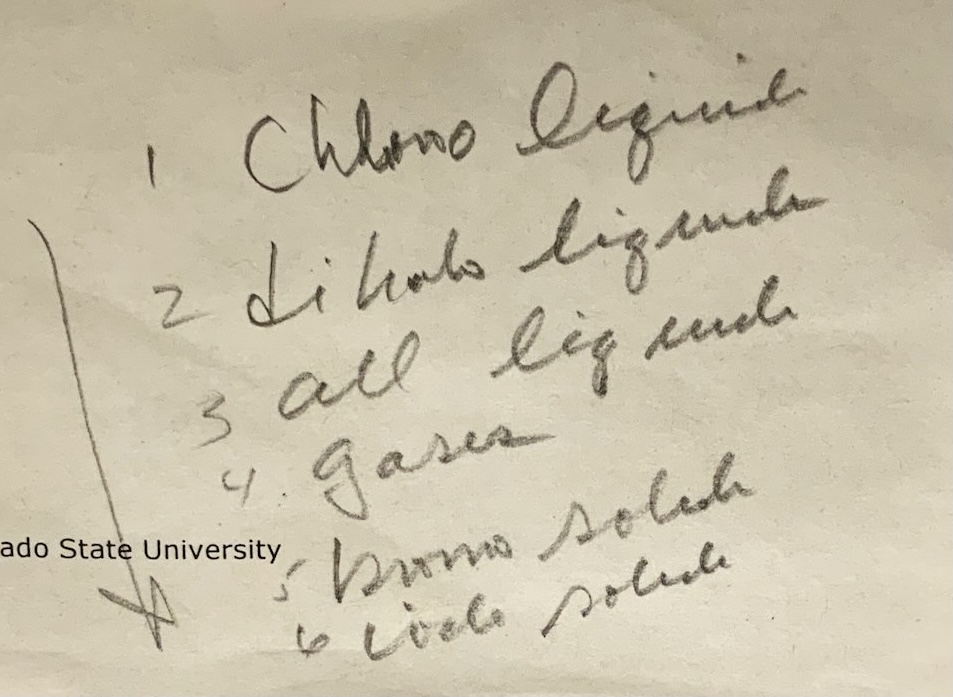 1 Chloro liquids
2 dihalo liquids
3 all liquids
4. gases
ado State University
5 bromo solids
6 iodo solids